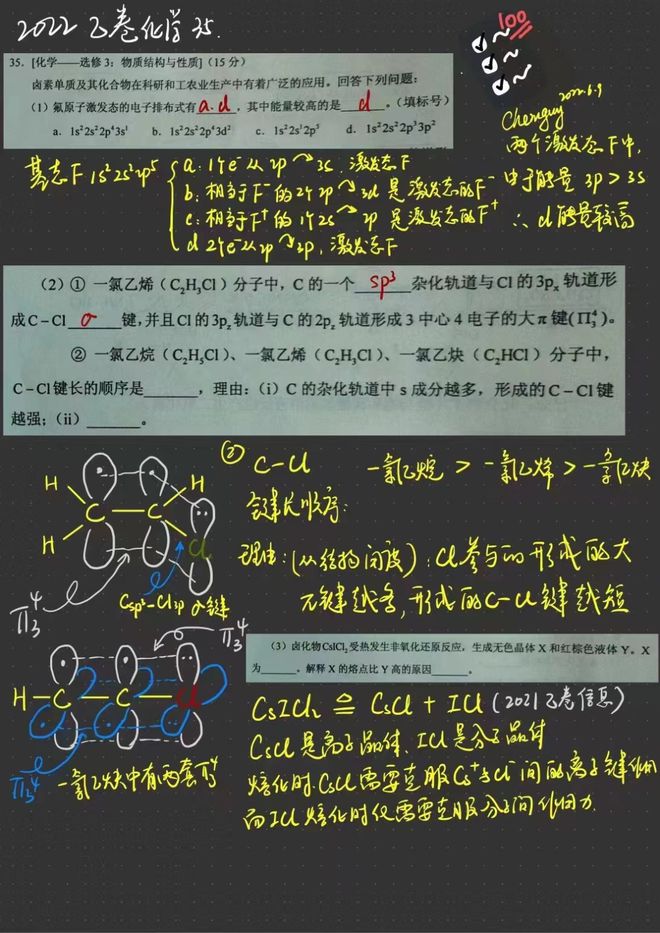 2022 乙卷化学 35.
100
35. [化学——选修 3：物质结构与性质]（15 分）
卤素单质及其化合物在科研和工农业生产中有着广泛的应用。回答下列问题：
（1）氟原子激发态的电子排布式有 a.d ，其中能量较高的是 d 。（填标号）
a. 1s²2s²2p⁴3s¹ b. 1s²2s²2p⁴3d² c. 1s²2s¹2p⁵ d. 1s²2s²2p³3p²
2022.6.9
两个激发态F中,
由于能量 3p > 3s
∴ d能量较高
基态F 1s²2s²2p⁵
a: 1个e⁻从2p 3s, 激发态F
b: 相当于F⁻的2个2p 3d 是激发态的F⁻
c: 相当于F⁺的1个2s 2p 是激发态的F⁺
d 2个e⁻从2p 3p, 激发态F
（2）① 一氯乙烯（C₂H₃Cl）分子中，C 的一个 sp³ 杂化轨道与 Cl 的 3pₓ 轨道形
成 C－Cl σ 键，并且 Cl 的 3p_z 轨道与 C 的 2p_z 轨道形成 3 中心 4 电子的大 π 键(Π₃⁴)。
② 一氯乙烷（C₂H₅Cl）、一氯乙烯（C₂H₃Cl）、一氯乙炔（C₂HCl）分子中，
C－Cl 键长的顺序是______，理由：（i）C 的杂化轨道中 s 成分越多，形成的 C－Cl 键
越强；（ii）______。
② C-Cl 一氯乙烷 > 一氯乙烯 > 一氯乙炔
键长顺序:
理由: (从结构角度): Cl参与的形成的大
π键越多, 形成的C-Cl键越短
H H
C C
H Cl
Π₃⁴
Csp³-Cl3p σ键
Π₃⁴
H-C C Cl
Π₃⁴
一氯乙炔中有两套Π₃⁴
（3）卤化物 CsICl₂ 受热发生非氧化还原反应，生成无色晶体 X 和红棕色液体 Y。X
为______。解释 X 的熔点比 Y 高的原因______。
CsICl₂ ≙ CsCl + ICl (2021乙卷信息)
CsCl 是离子晶体, ICl是分子晶体
熔化时, CsCl需要克服Cs⁺与Cl⁻间的离子键作用
而ICl熔化时仅需要克服分子间作用力.